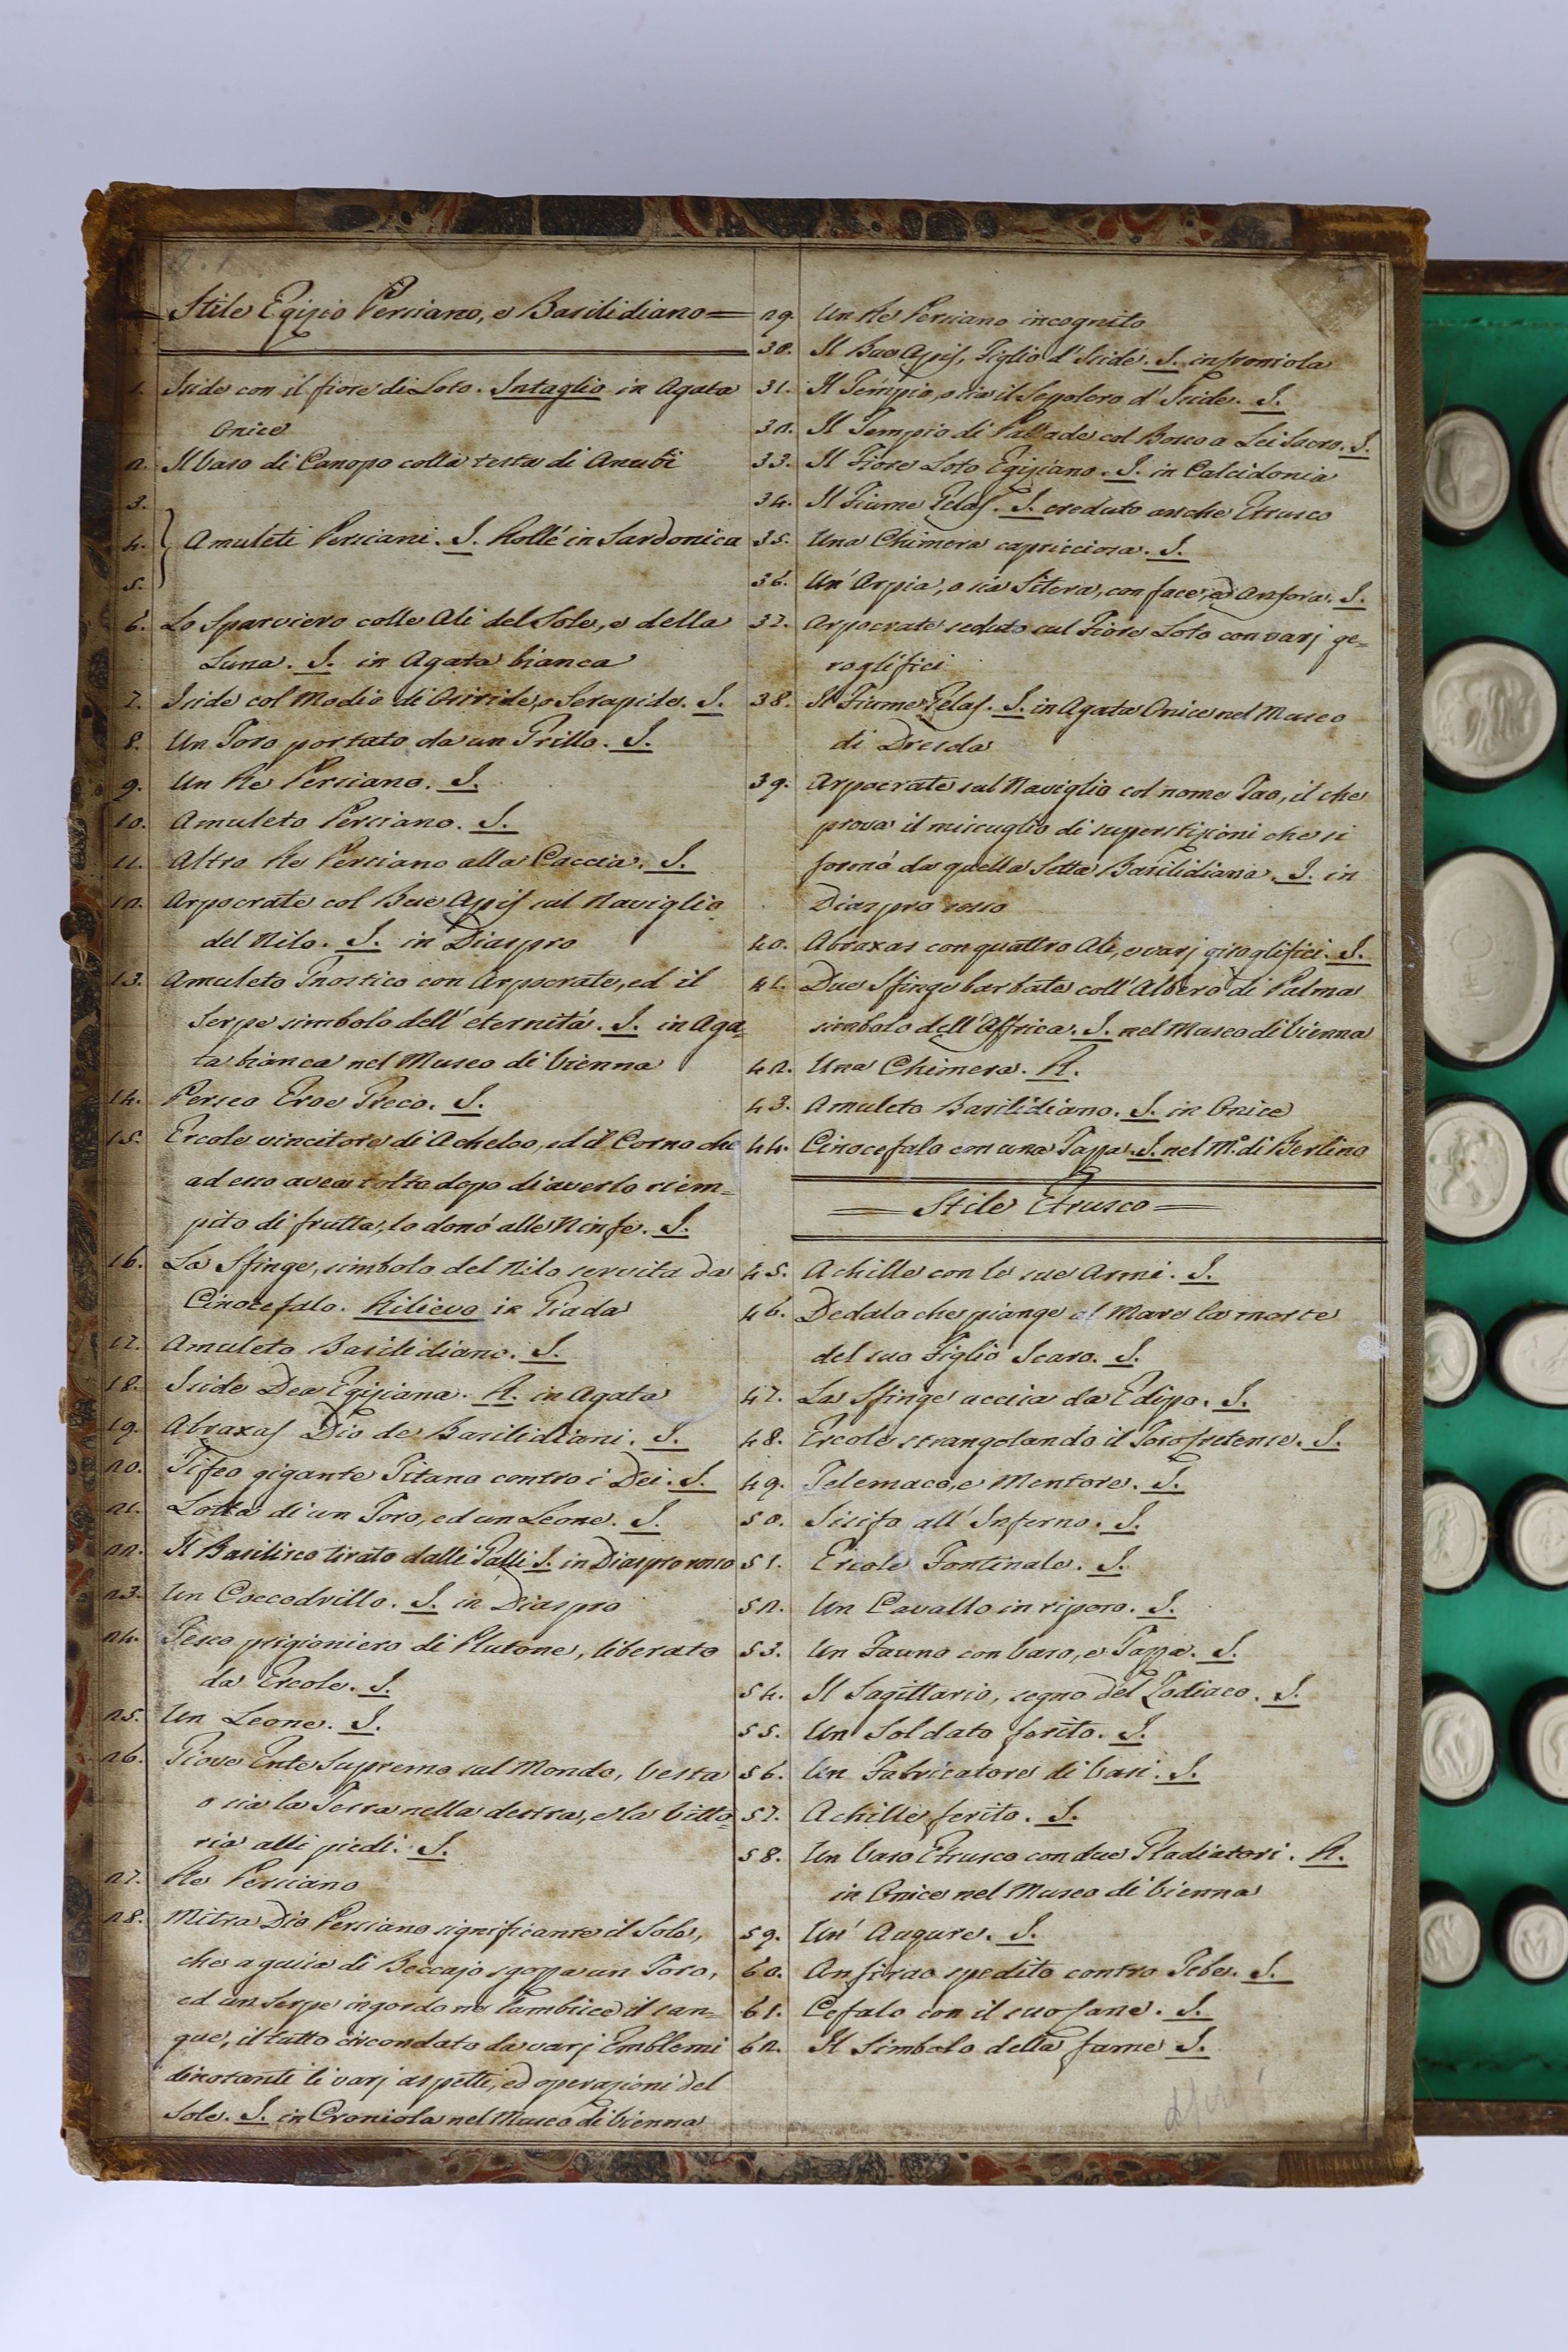 Stile Egizio Persiano, e Basilidiano
1. Iside con il fiore di Loto. Intaglio in Agata
Onice
2. Il Vaso di Canopo colla testa di Anubi
3.
4. Amuleti Persiani. I. Rollé in Sardonica
5.
6. Lo Sparviero colle Ali del Sole, e della
Luna. I. in Agata bianca
7. Iside col Modio di Osiride, o Serapide. I.
8. Un Toro portato da un Grillo. I.
9. Un Re Persiano. I.
10. Amuleto Persiano. I.
11. Altro Re Persiano alla Caccia. I.
12. Arpocrate col Bue Apis sul Naviglio
del Nilo. I. in Diaspro
13. Amuleto Gnostico con Arpocrate, ed il
Serpe simbolo dell' eternità. I. in Aga=
ta bianca nel Museo di Vienna
14. Perseo Eroe Greco. I.
15. Ercole vincitore di Acheloo, ed il Corno che
ad esso avea tolto dopo di averlo riem=
pito di frutta, lo donò alle Ninfe. I.
16. La Sfinge, simbolo del Nilo servita da
Cinocefalo. Rilievo in Giada
17. Amuleto Basilidiano. I.
18. Iside Dea Egiziana. R. in Agata
19. Abraxas Dio de Basilidiani. I.
20. Tifeo gigante Titano contro i Dei. I.
21. Lotta di un Toro, ed un Leone. I.
22. Il Basilisco tirato dalli Galli I. in Diaspro rosso
23. Un Coccodrillo. I. in Diaspro
24. Teseo prigioniero di Plutone, liberato
da Ercole. I.
25. Un Leone. I.
26. Giove Ente Supremo sul Mondo, Vesta
o sia la Terra nella destra, e la Vitto=
ria alli piedi. I.
27. Re Persiano
28. Mitra Dio Persiano significante il Sole,
che a guisa di Beccajo sgozza un Toro,
ed un Serpe ingordo ne lambisce il san=
gue, il tutto circondato da varj Emblemi
dinotanti li varj aspetti, ed operazioni del
Sole. I. in Croniola nel Museo di Vienna
29. Un Re Persiano incognito
30. Il Bue Apis, Figlio d' Iside. I. in
31. Il Tempio, o sia il Sepolcro d' Iside. I.
32. Il Tempio di Pallade col Bosco a Lei Sacro. I.
33. Il Fiore Loto Egiziano. I. in Calcidonia
34. Il Fiume Gelas. I. creduto anche Etrusco
35. Una Chimera capricciosa. I.
36. Un' Arpia, o sia con face, ed Anfora. I.
37. Arpocrate seduto sul Fiore Loto con varj ge=
roglifici
38. Il Fiume Gelas. I. in Agata Onice nel Museo
di Dresda
39. Arpocrate sul Naviglio col nome Iao, il che
prova il miscuglio di superstizioni che si
formò da quella Setta Basilidiana. I. in
Diaspro rosso
40. Abraxas con quattro Ali, e varj giroglifici. I.
41. Due Sfinge barbate coll' Albero di Palma
simbolo dell' Affrica. I. nel Museo di Vienna
42. Una Chimera. R.
43. Amuleto Basilidiano. I. in Onice
44. Cinocefalo con una Tazza. I. nel M.º di Berlino
Stile Etrusco
45. Achille con le sue Armi. I.
46. Dedalo che piange al Mare la morte
del suo Figlio Icaro. I.
47. La Sfinge uccisa da Edipo. I.
48. Ercole strangolando il Toro Cretense. I.
49. Telemaco, e Mentore. I.
50. Sisifo all' Inferno. I.
51. Ercole Fontinale. I.
52. Un Cavallo in riposo. I.
53. Un Fauno con Vaso, e Tazza. I.
54. Il Sagittario, segno del Zodiaco. I.
55. Un Soldato ferito. I.
56. Un Fabricatore di Vasi. I.
57. Achille ferito. I.
58. Un Vaso Etrusco con due Gladiatori. R.
in Onice nel Museo di Vienna
59. Un' Augure. I.
60. Anfirao spedito contro Tebe. I.
61. Cefalo con il suo Cane. I.
62. Il Simbolo della fame I.